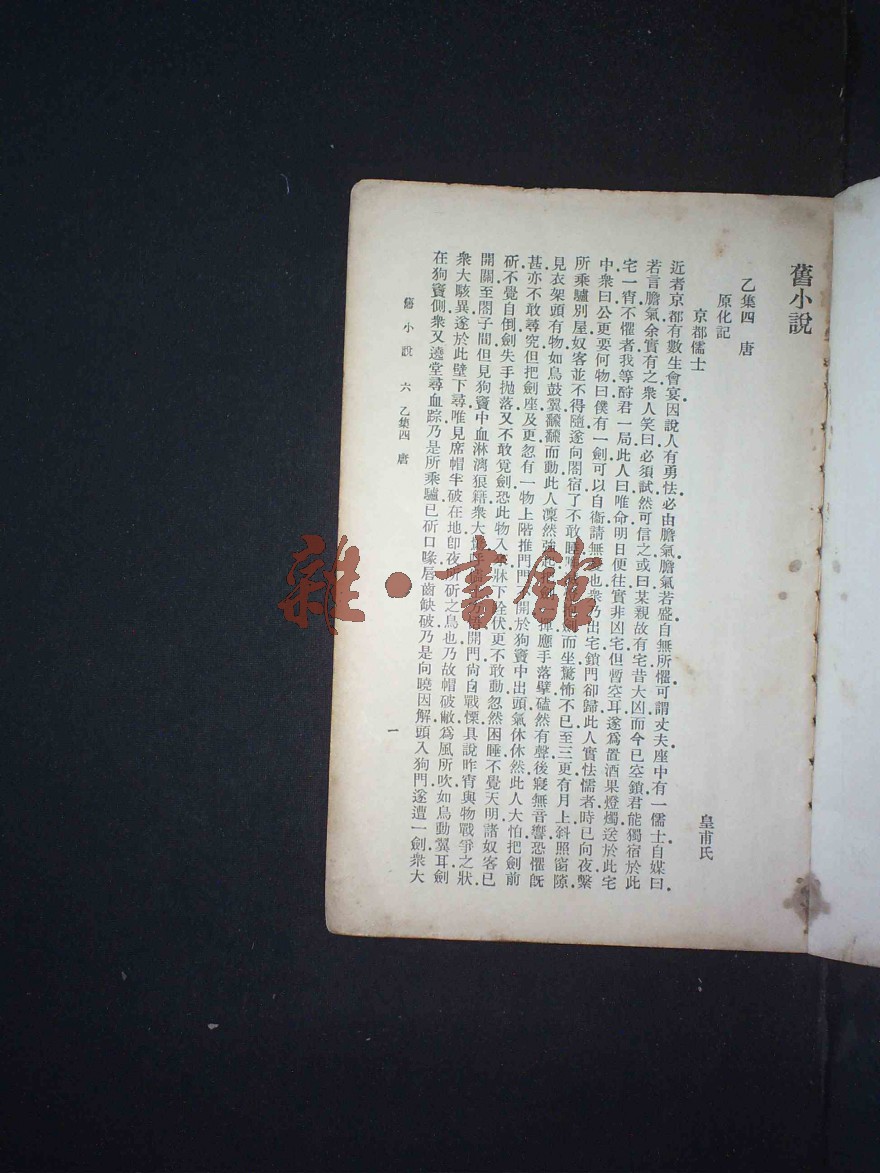 舊小說
乙集四 唐
原化記
皇甫氏
京都儒士
近者京都有數生會宴因說人有勇怯必由膽氣膽氣若盛自無所懼可謂丈夫座中有一儒士自媒曰
若言膽氣余實有之衆人笑曰必須試然可信之或曰某親故有宅昔大凶而今已空鎖君能獨宿於此
宅一宵不懼者我等酧君一局此人曰唯命明日便往實非凶宅但暫空耳遂爲置酒果燈燭送於此宅
中衆曰公更要何物曰僕有一劍可以自衞請無 也衆乃出宅鎖門卻歸此人實怯懦者時已向夜繫
所乘驢別屋奴客並不得隨遂向閤宿了不敢睡 而坐驚怖不已至三更有月上斜照窗隙
見衣架頭有物如鳥鼓翼翻翻而動此人凜然強 揮應手落壁磕然有聲後寢無音響恐懼旣
甚亦不敢尋究但把劍座及更忽有一物上階推門門 開於狗竇中出頭氣休休然此人大怕把劍前
斫不覺自倒劍失手抛落又不敢覓劍恐此物入 牀下跧伏更不敢動忽然困睡不覺天明諸奴客已
開關至閤子間但見狗竇中血淋漓狼籍衆大 開門尚自戰慄具說昨宵與物戰爭之狀
衆大駭異遂於此壁下尋唯見席帽半破在地卽夜所斫之鳥也乃故帽破敝爲風所吹如鳥動翼耳劍
在狗竇側衆又遶堂尋血踪乃是所乘驢已斫口喙唇齒缺破乃是向曉因解頭入狗門遂遭一劍衆大
舊小說 六 乙集四 唐
一
雜·書館